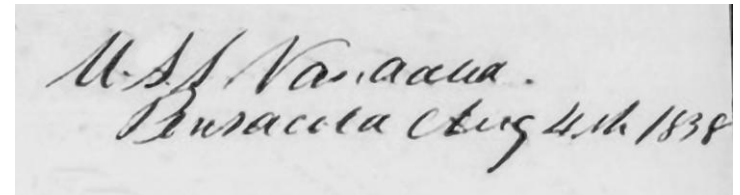 U.S.S. Vandalia.
Pensacola Aug 4th 1838